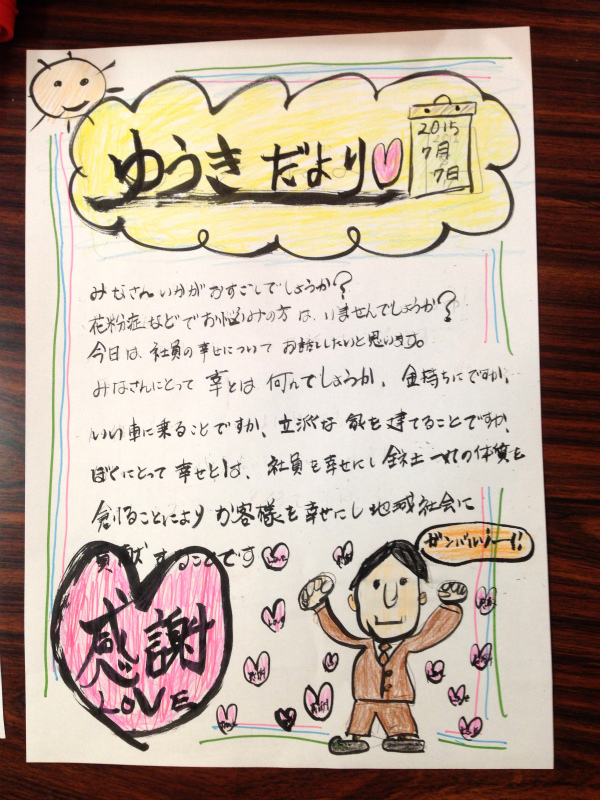 ゆうきだより
2015
7月
7日
みなさんいかがおすごしでしょうか?
花粉症などでお悩みの方は、いませんでしょうか?
今日は、社員の幸せについてお話ししたいと思います。
みなさんにとって幸とは何んでしょうか、金持ちにですか、
いい車に乗ることですか、立派な家を建てることですか、
ぼくにとって幸せとは、社員を幸せにし会社の体質を
創ることによりお客様を幸せにし地域社会に
貢献することです
ガンバルゾー!!
感謝
LOVE